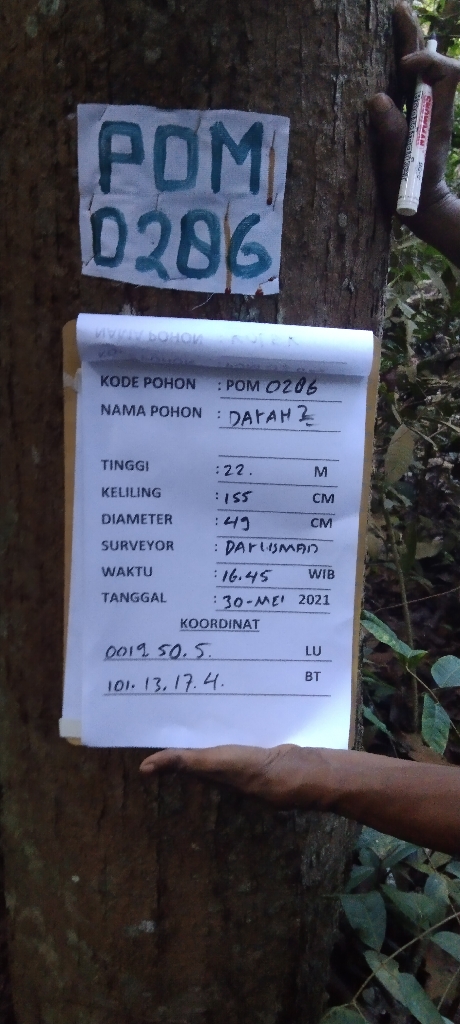 POM
0286
NAMA POHON
KODE POHON : POM 0286
NAMA POHON : DARAH 2
TINGGI : 22. M
KELILING : 155 CM
DIAMETER : 49 CM
SURVEYOR : DARUSMAN
WAKTU : 16.45 WIB
TANGGAL : 30-MEI 2021
KOORDINAT
0019 50.5. LU
101. 13. 17. 4. BT
SNOWMAN